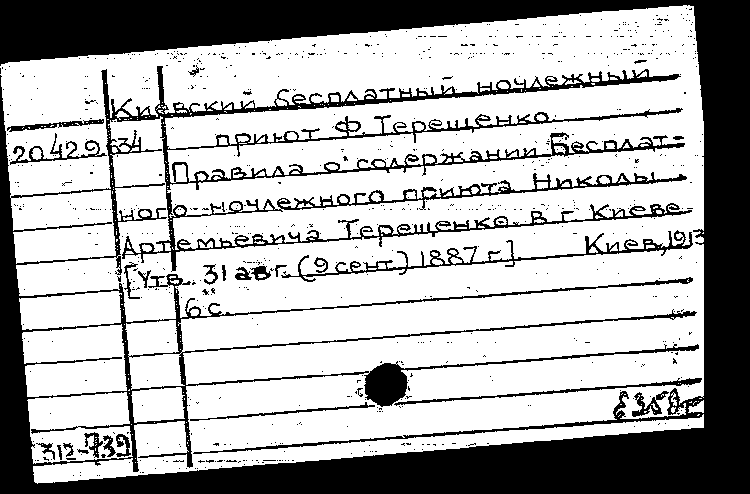 Киевский бесплатный ночлежный
приют Ф. Терещенко.
20.42.9.634
Правила о содержании Бесплат-
ного ночлежного приюта Николы
Артемьевича Терещенко в г. Киеве
[Утв. 31 авг. (9 сент.) 1887 г.]. Киев, 1913
6 с.
312-739